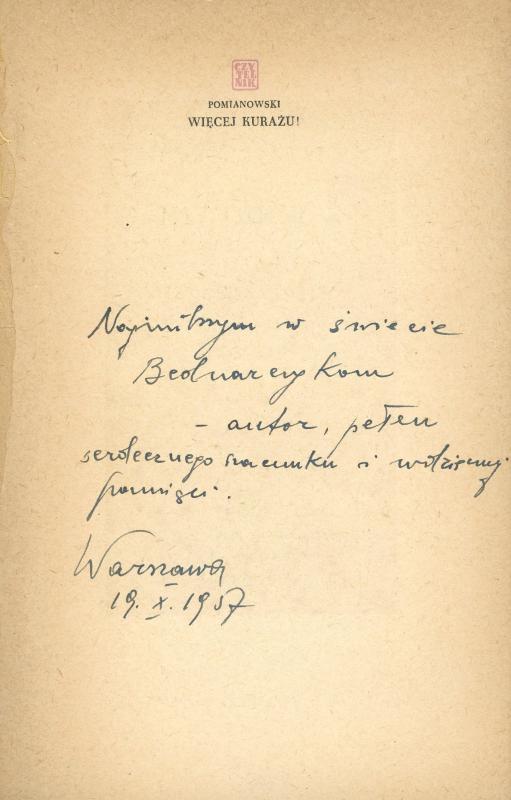 CZY
TEL
NIK
POMIANOWSKI
WIĘCEJ KURAŻU!
Najmilszym w świecie
Bednarczykom
– autor, pełen
serdecznego szacunku i wdzięcznej
pamięci.
Warszawa
19. X. 1957